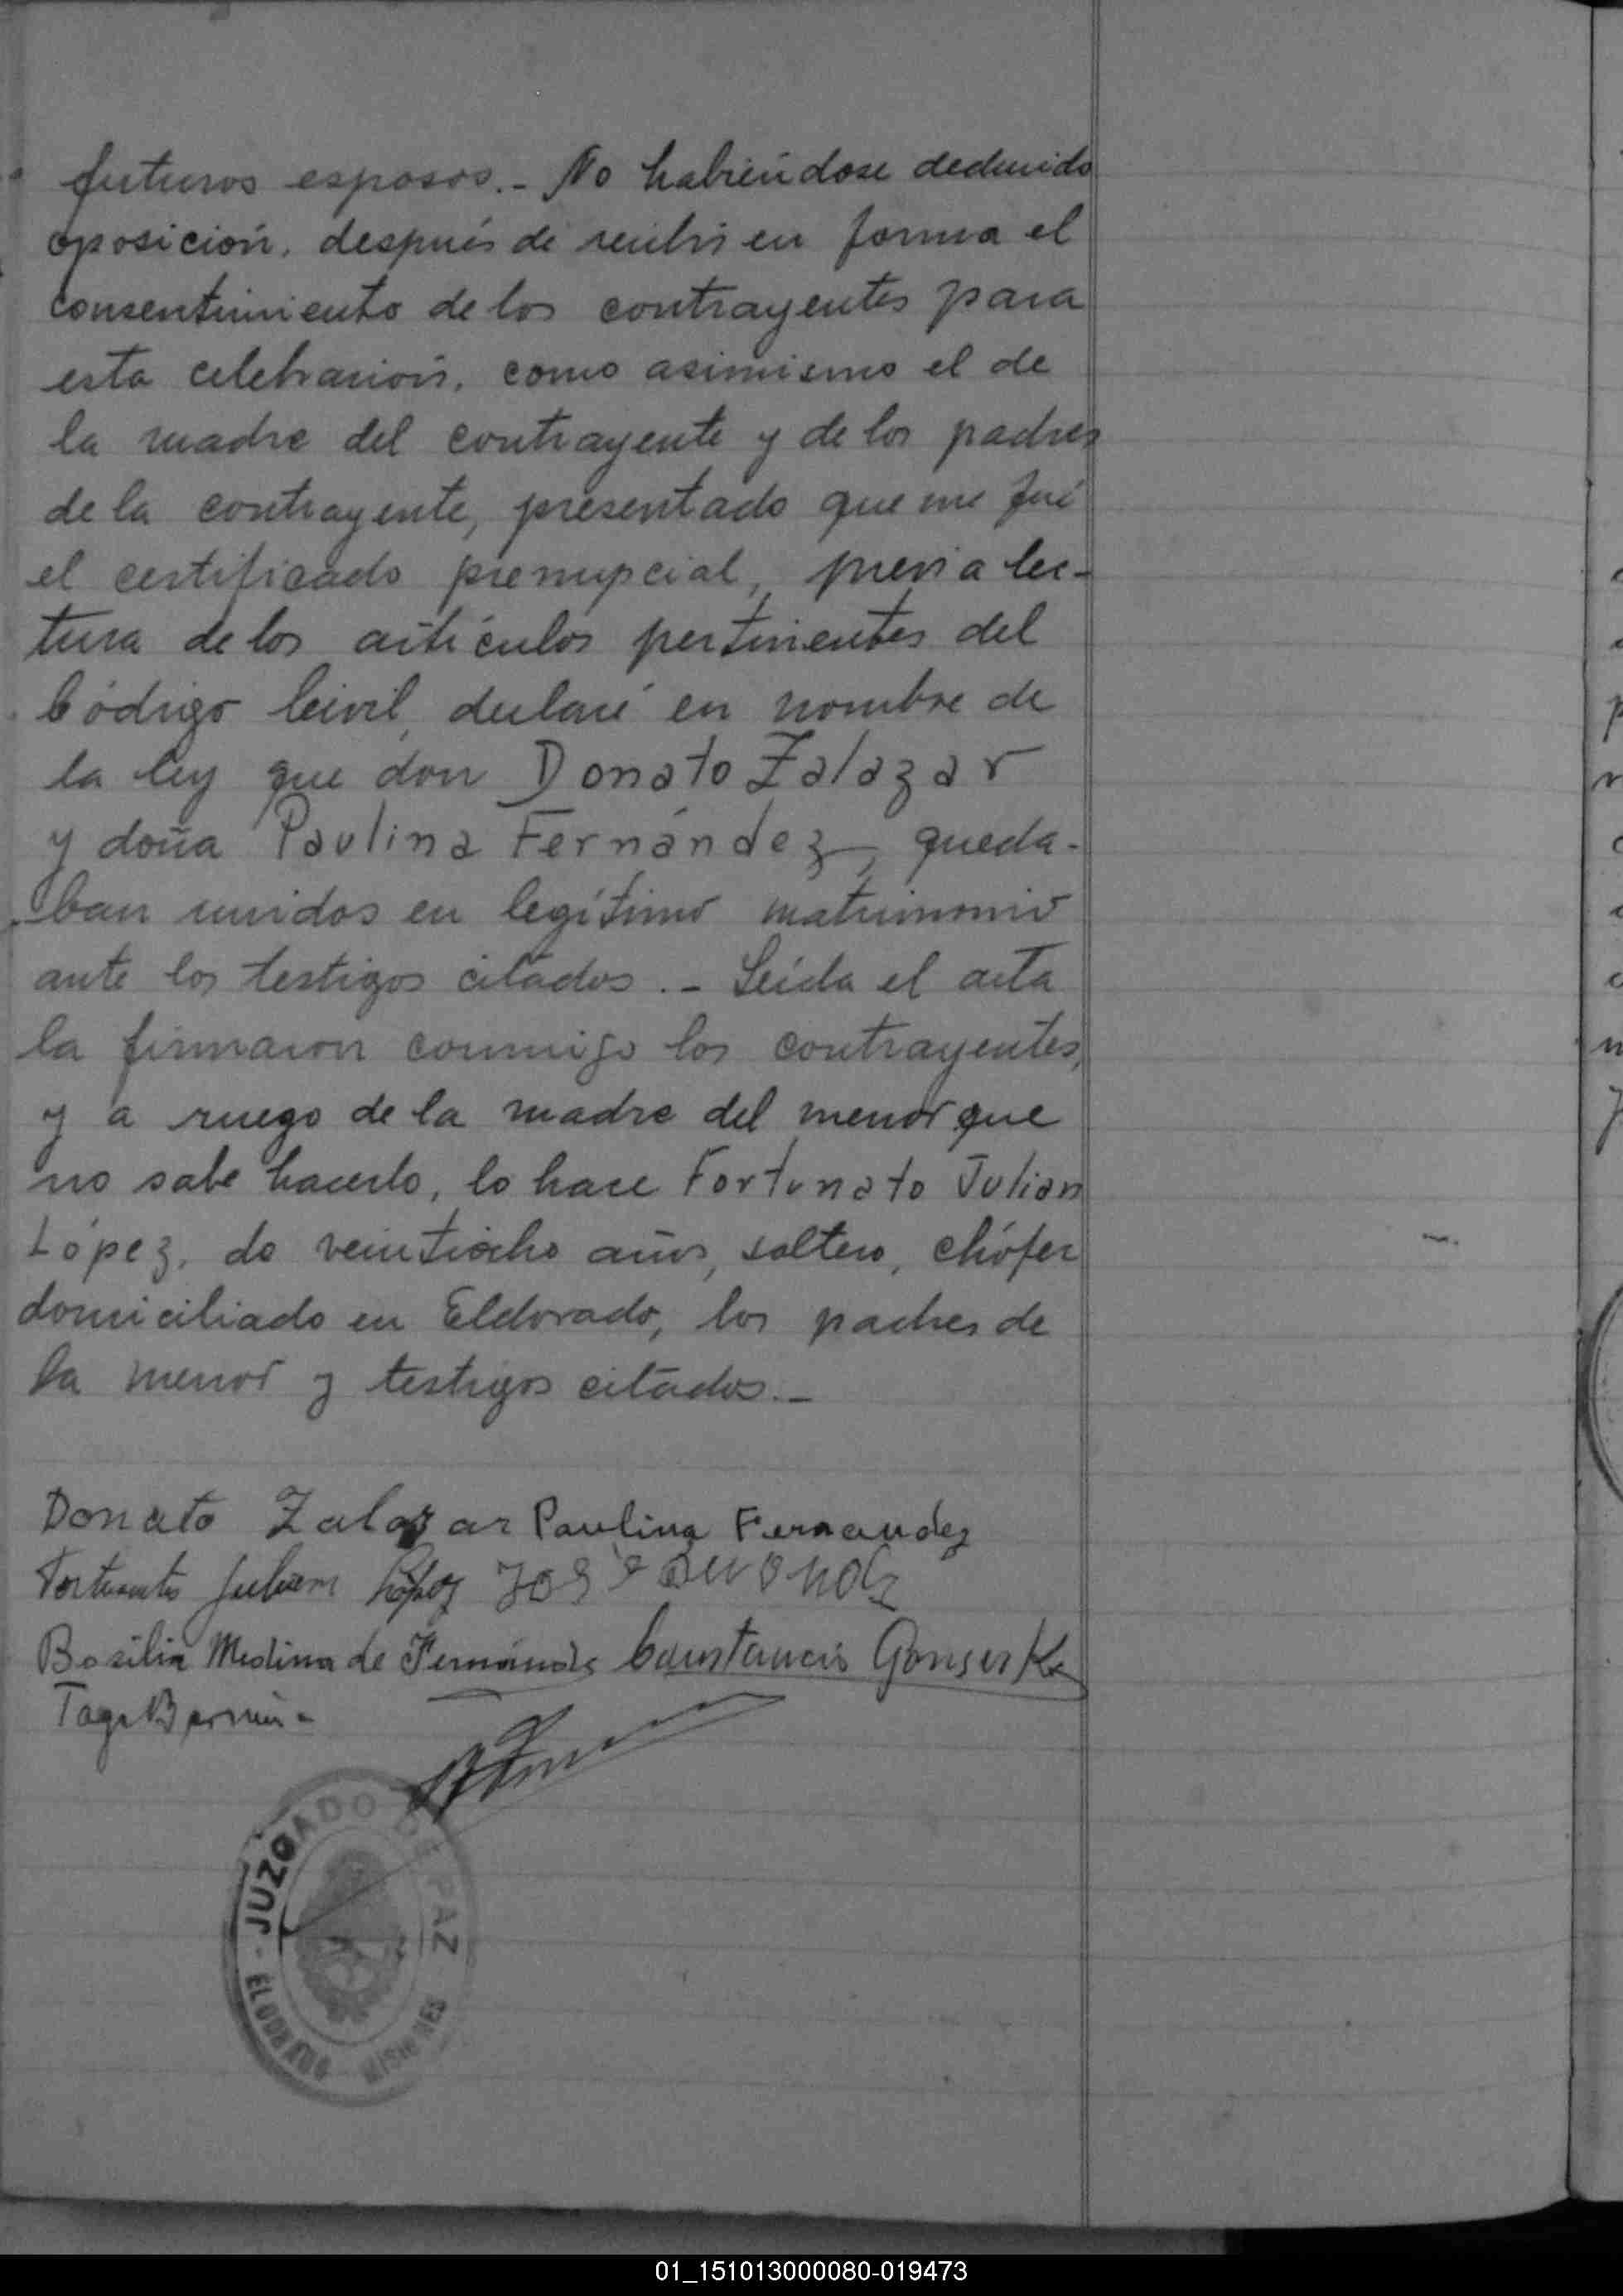 futuros esposos.- No habiéndose deducido
oposición, después de recibir en forma el
consentimiento de los contrayentes para
esta celebración, como asimismo el de
la madre del contrayente y de los padres
de la contrayente, presentado que me fué
el certificado prenupcial, previa lec-
tura de los artículos pertinentes del
Código Civil, declaré en nombre de
la ley que don Donato Zalazar
y doña Paulina Fernández, queda-
ban unidos en legítimo matrimonio
ante los testigos citados.- Leída el acta
la firmaron conmigo los contrayentes,
y a ruego de la madre del menor que
no sabe hacerlo, lo hace Fortunato Julian
López, de veintiocho años, soltero, chófer
domiciliado en Eldorado, los padres de
la menor y testigos citados.-
Donato Zalazar Paulina Fernandez
Fortunato Julian López José
Basilia Medina de Fernández Constancio
JUZGADO DE PAZ
ELDORADO MISIONES
01_151013000080-019473